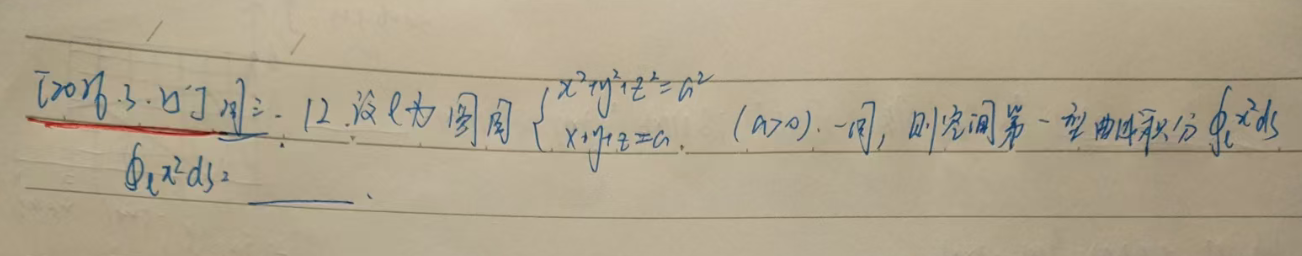 [2026.3.25] 周三. 12.设l为圆周 { x²+y²+z²=a² x+y+z=a. (a>0).一周, 则空间第一型曲线积分 ∮ₗx²ds
∮ₗx²ds= ______.